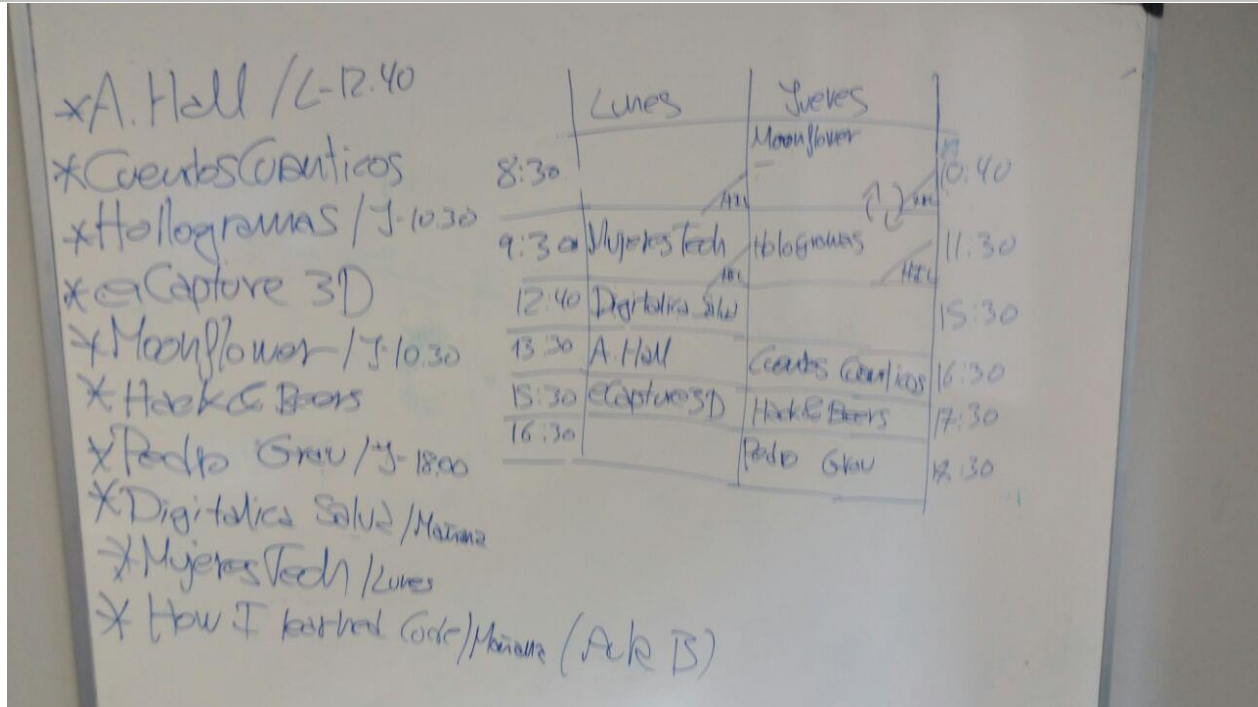 *A. Hall / L-12.40
*CuentosCuánticos
*Hollogramas / J-10.30
*eCapture 3D
*Moonflower / J-10.30
*Hack&Beers
*Pedro Grau / J-18.00
*Digitalica Salud / Mañana
*MujeresTech / Lunes
*How I learned Code / Mañana (Aula B)
Lunes Jueves
Moonflower
8:30 10:40
9:30 MujeresTech Hologramas 11:30
12:40 Digitalica Salud 15:30
13:30 A. Hall Cuentos Cuanticos 16:30
15:30 eCapture3D Hack&Beers 17:30
16:30 Pedro Grau 18:30